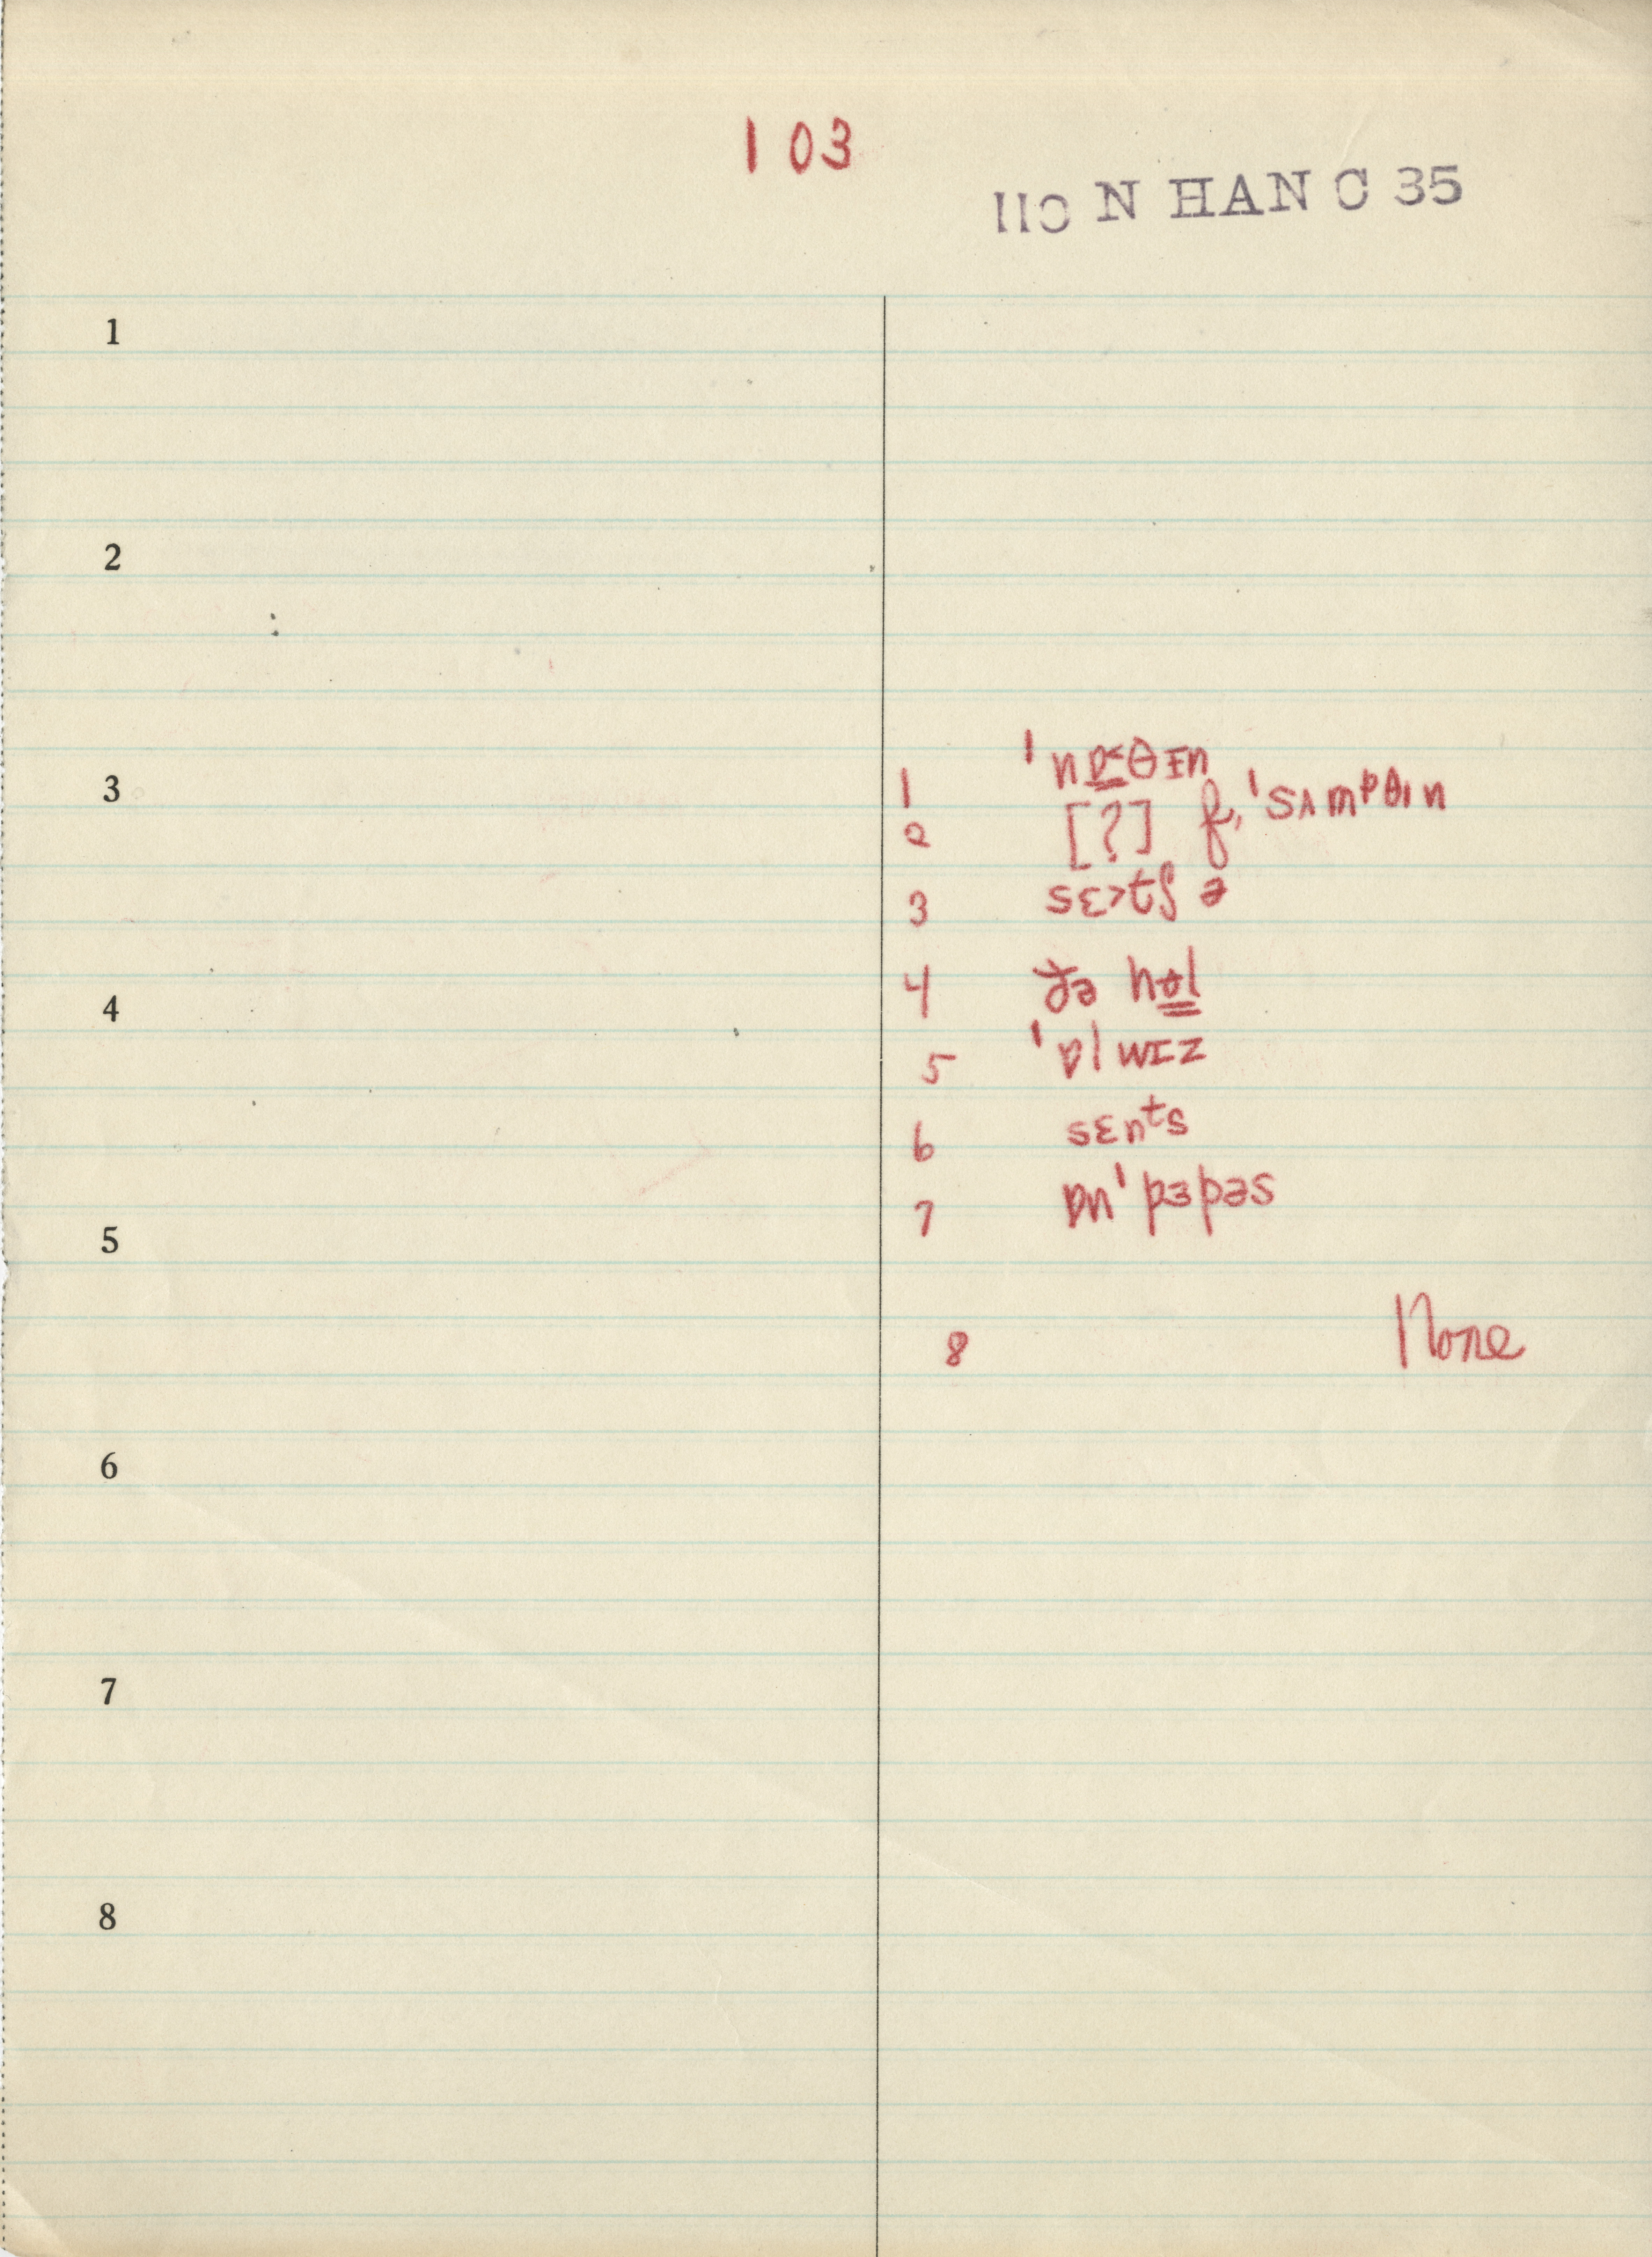 103
11C N HAN C 35
1
2
3
1 ˈnɒ̱˂θɪn
2 [?] f, ˈsʌmᵖθɪn
3 sɛ>tʃ ə
4
4 ðə hɵ̳l
5 ˈɒlwɪz
6 sɛnᵗs
7 ɒnˈpɜpəs
5
8 None
6
7
8